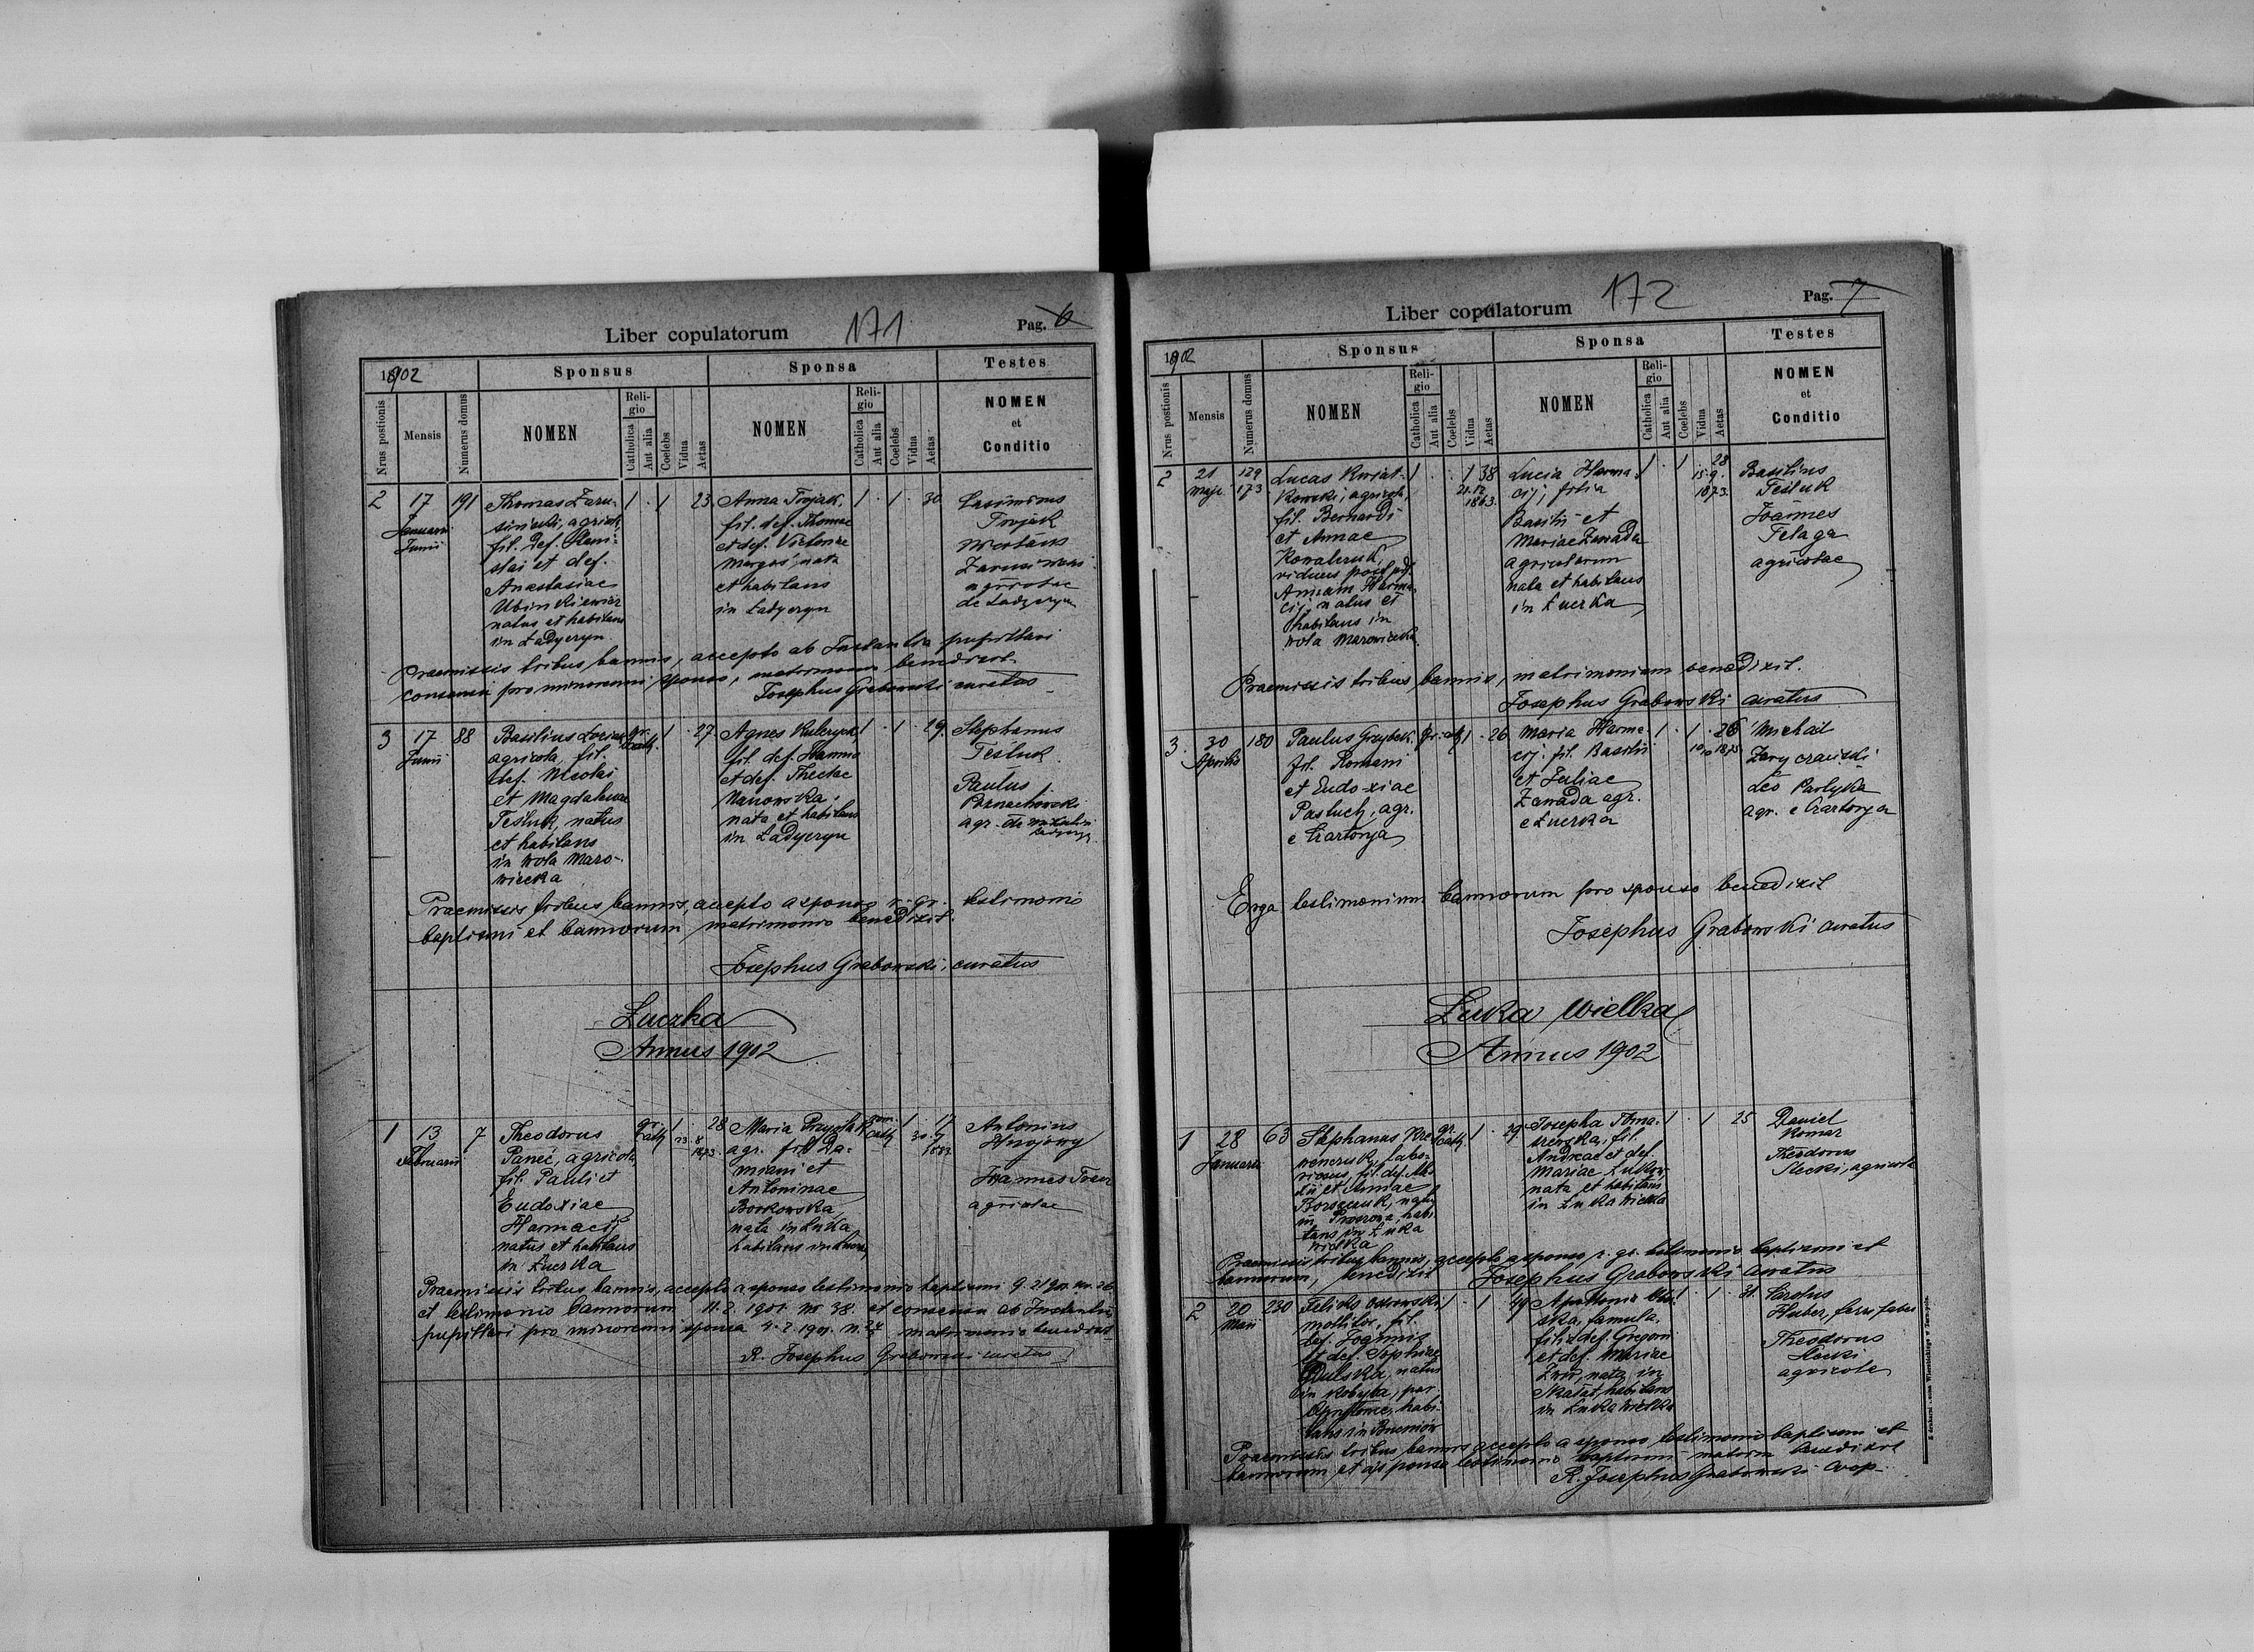 Liber copulatorum 171 Pag. 6
1902 Sponsus Sponsa Testes
Nrus postionis Mensis Numerus domus NOMEN Religio Catholica Aut alia Coelebs Vidua Aetas NOMEN Religio Catholica Aut alia Coelebs Vidua Aetas NOMEN et Conditio
2 17 Januarii Junii 191
Thomas Zaru-
siński, agricola,
fil. def. Stani-
slai et def.
Anastasiae
natus et habitans
in Ładyczyn
1 . 1 23
Anna Trojak,
fil. def. Thomae
et def. Victoriae
nata
et habitans
in Ładyczyn
1 . 1 . 30
Casimirus
Trojak
Zarusiński
agricolae
de Ładyczyn
Praemissis tribus bannis, accepto ab Instantia pupillari
consensu pro minorenni sponso, matrimonium benedixit
Josephus Grabowski curatus
3 17 Junii 88
Basilius
agricola, fil.
def. Nicolai
et Magdalenae
Tesluk, natus
et habitans
in Wola Mazo-
wiecka
gr. cath. 1 . 27
Agnes
fil. def. Joannis
et def. Theclae
Nanowska,
nata et habitans
in Ładyczyn
1 . 1 . 29
Stephanus
Tesluk
Paulus
agr. de
Praemissis tribus bannis, accepto a sponso r. gr. testimonio
baptismi et bannorum, matrimonio benedixit.
Josephus Grabowski, curatus
Łuczka
Annus 1902
1 13 Februarii 7
Theodorus
Paneć, agricola,
fil. Pauli et
Eudoxiae
Harmacij
natus et habitans
in Łuczka
gr. cath 1 28
23 8 1873
Maria
agr. fil. Da-
miani et
Antoninae
Borkowska,
nata in Łuka
habitans in
cath 1 . 17
Antonius
Hnojowy
Joannes
agricolae
Praemissis tribus bannis, accepto a sponso testimonio baptismi
et testimonio bannorum 11.2.1901 nr 38. et consensu ab Instantia
pupillari pro minorenni sponsa matrimonio benedixit
R. Josephus Grabowski curatus
Liber copulatorum 172 Pag. 7
1902 Sponsus Sponsa Testes
Nrus postionis Mensis Numerus domus NOMEN Religio Catholica Aut alia Coelebs Vidua Aetas NOMEN Religio Catholica Aut alia Coelebs Vidua Aetas NOMEN et Conditio
2 21 Maji 129 173
Lucas Kwiat-
kowski, agricola,
fil. Bernardi
et Annae
Kowalczuk,
viduus post def.
Annam Harma-
cij, natus et
habitans in
Wola Mazowiecka
1 . . 1 38
21.12 1863.
Lucia Harma-
cij, filia
Basilii et
Mariae Zawada
agricolarum
nata et habitans
in Łuczka
1 . 1 . 28
15.9. 1873.
Basilius
Tesluk
Joannes
Telaga
agricolae
Praemissis tribus bannis, matrimonium benedixit.
Josephus Grabowski curatus
3. 30 Aprilis 180
Paulus Grzybek
fil. Romani
et Eudoxiae
Pastuch, agr.
e Czartorya
gr. cath 1 . 26
Maria Harma-
cij, fil. Basilii
et Juliae
Zawada agr.
e Łuczka
1 . 1 . 26
Michael
Leo Partyka
agr. e Czartorya
Erga testimonium bannorum pro sponso benedixit
Josephus Grabowski curatus
Łuka Wielka
Annus 1902
1 28 Januarii 63
Stephanus
Annae
habi-
tans in Łuka
Wielka
gr. cath 1 . 29
Josepha Toma-
szewska, fil.
Andreae et def.
Mariae
nata et habitans
in Łuka Wielka
1 . 1 25
Daniel
Komar
Theodorus
Slecki, agricolae
Praemissis tribus bannis, accepto a sponso r. gr. testimonio baptismi et
bannorum, benedixit Josephus Grabowski curatus
2 20 Maii 230
Felicis Ostrowski
molitor, fil.
def. Joannis
et def. Sophiae
natus
in Kobyla, par.
habi-
tans in
1 . 1 49
Apollonia
ska, famula,
filia def. Gregorii
et def. Mariae
nata in
Skałat, habitans
in Łuka Wielka
1 . 1 . 31
Carolus
Huber,
Theodorus
Slecki
agricola
Praemissis tribus bannis accepto a sponso testimonio baptismi et
bannorum, et a sponsa testimonio baptismi matrim benedixit
R. Josephus Grabowski coop.